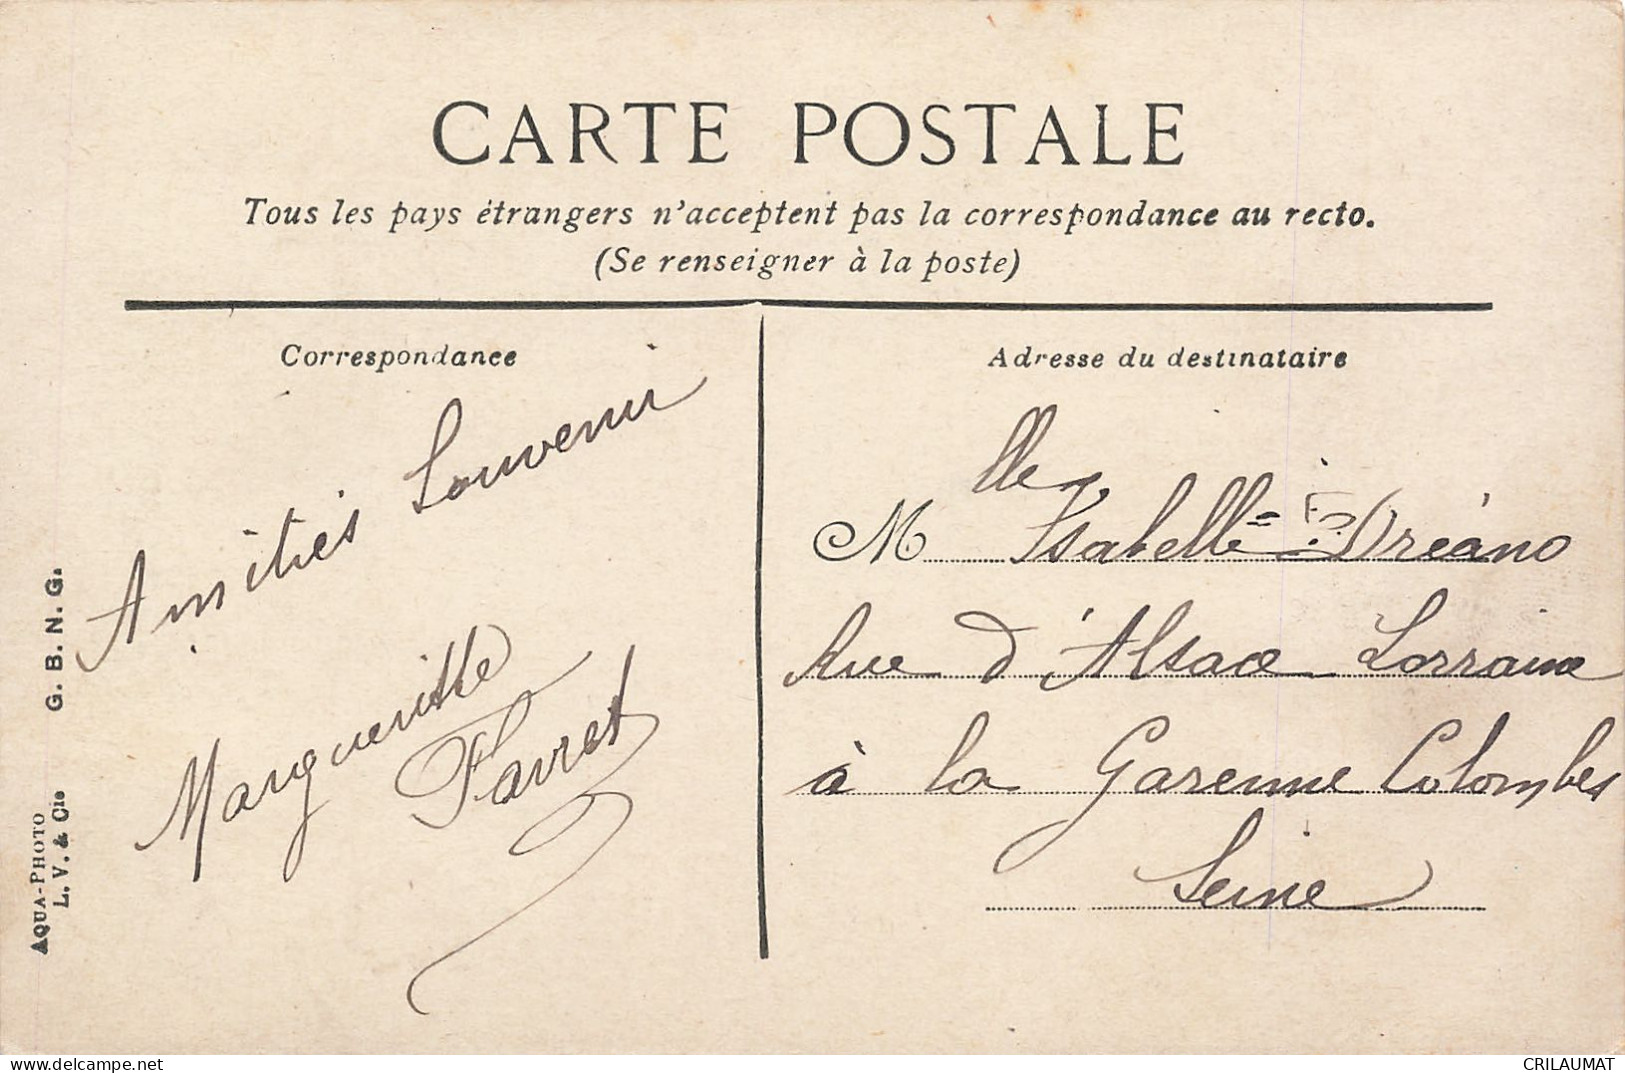 CARTE POSTALE
Tous les pays étrangers n'acceptent pas la correspondance au recto.
(Se renseigner à la poste)
Correspondance
Amitiés Souvenir
Margueritte
Favret
G. B. N. G.
AQUA-PHOTO
L. V. & Cie
Adresse du destinataire
Mlle Isabelle Dréano
Rue d'Alsace Lorraine
à la Garenne Colombes
Seine
delcampe.net
CRILAUMAT